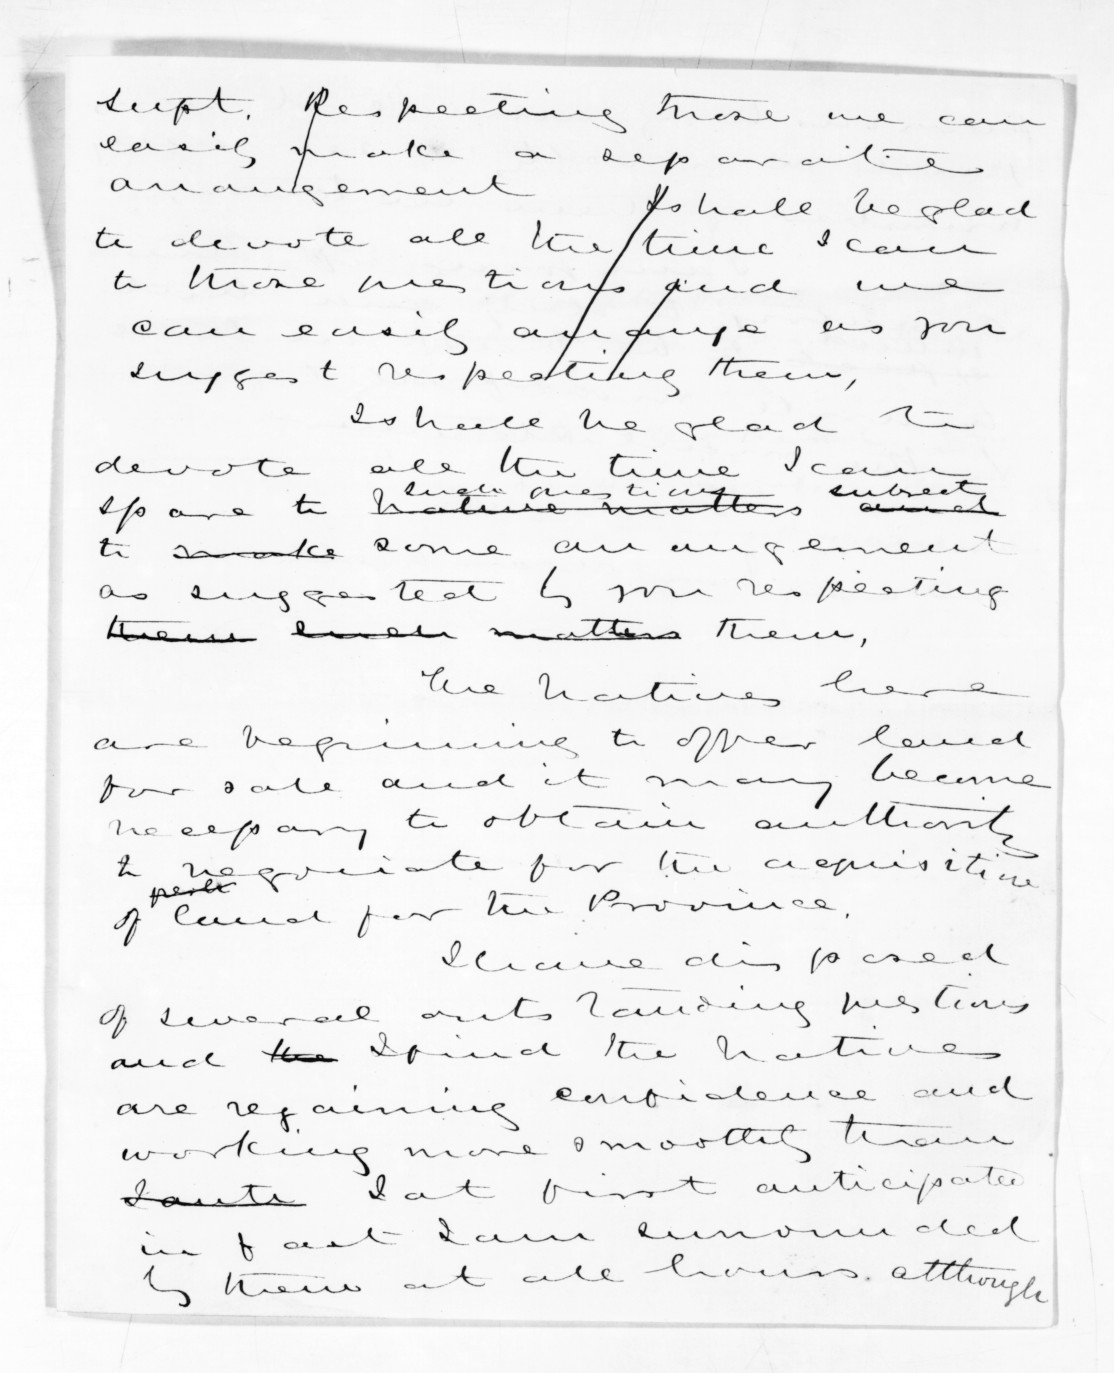 Supt. Respecting those we can
easily make a separate
arrangement I shall be glad
to devote all the time I can
to those questions and we
can easily arrange as you
suggest respecting them,
I shall be glad to
devote all the time I can
such questions subject
spare to Native matters and
to make some arrangement
as suggested by you respecting
them such matters them,
The Natives here
are beginning to offer land
for sale and it may become
necessary to obtain authority
to negociate for the acquisition
of land for the Province.
I have disposed
of several outstanding questions
and the I find the Natives
are regaining confidence and
working more smoothly than
I at first anticipated
in fact I am surrounded
by them at all hours. although